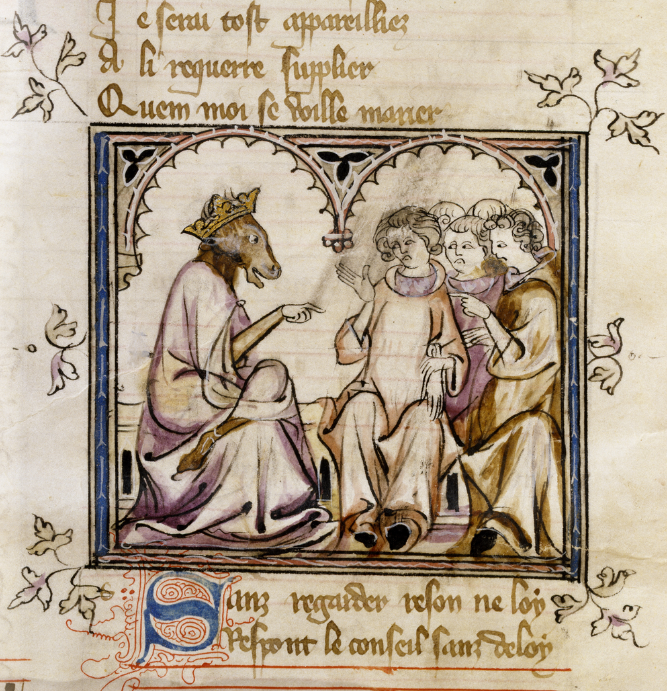 Je serai tost appareilliez
A li requerre supplier
Quem moi se voille marier
Sanz regarder reson ne loy
Respont le conseil sanz deloy